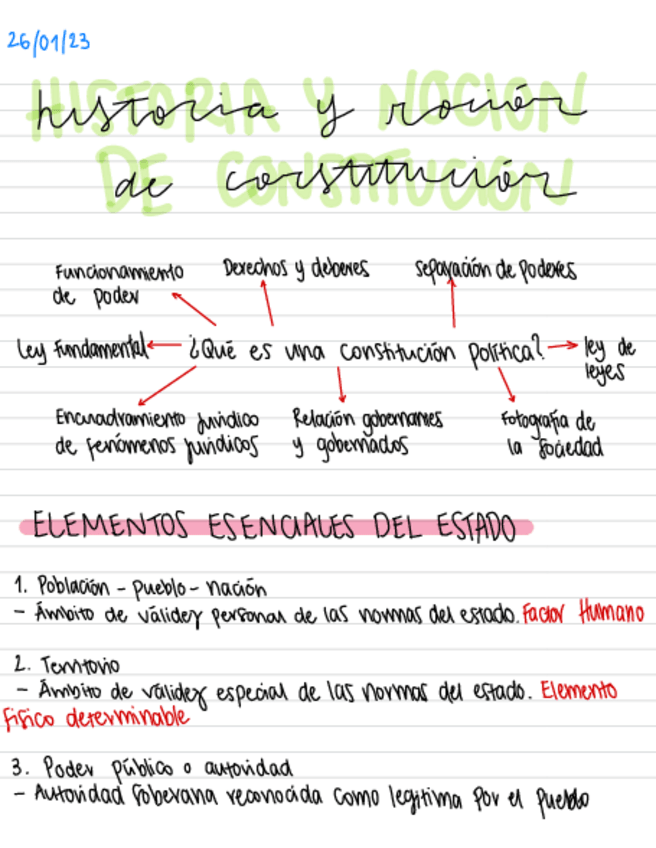 26/01/23
HISTORIA Y NOCIÓN
historia y noción
DE CONSTITUCIÓN
de constitución
Funcionamiento
de poder
Derechos y deberes
Separación de Poderes
Ley Fundamental
¿Qué es una constitución política?
ley de
leyes
Encuadramiento jurídico
de fenómenos jurídicos
Relación gobernantes
y gobernados
Fotografía de
la Sociedad
ELEMENTOS ESENCIALES DEL ESTADO
1. Población - pueblo - nación
- Ámbito de validez personal de las normas del estado. Factor Humano
2. Territorio
- Ámbito de validez especial de las normas del estado. Elemento
Físico determinable
3. Poder público o autoridad
- Autoridad Soberana reconocida como legítima por el pueblo